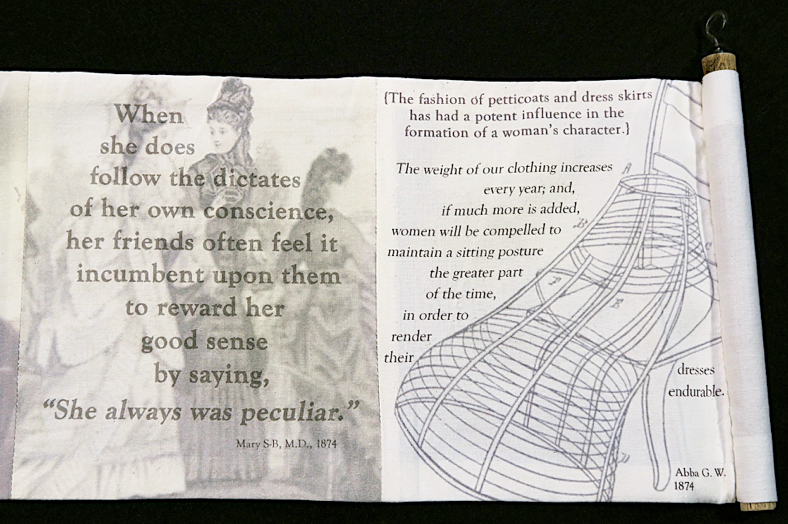 When
she does
follow the dictates
of her own conscience,
her friends often feel it
incumbent upon them
to reward her
good sense
by saying,
“She always was peculiar.”
Mary S-B, M.D., 1874
{The fashion of petticoats and dress skirts
has had a potent influence in the
formation of a woman's character.}
The weight of our clothing increases
every year; and,
if much more is added,
women will be compelled to
maintain a sitting posture
the greater part
of the time,
in order to
render
their
dresses
endurable.
Abba G. W.
1874
A
B
C
E